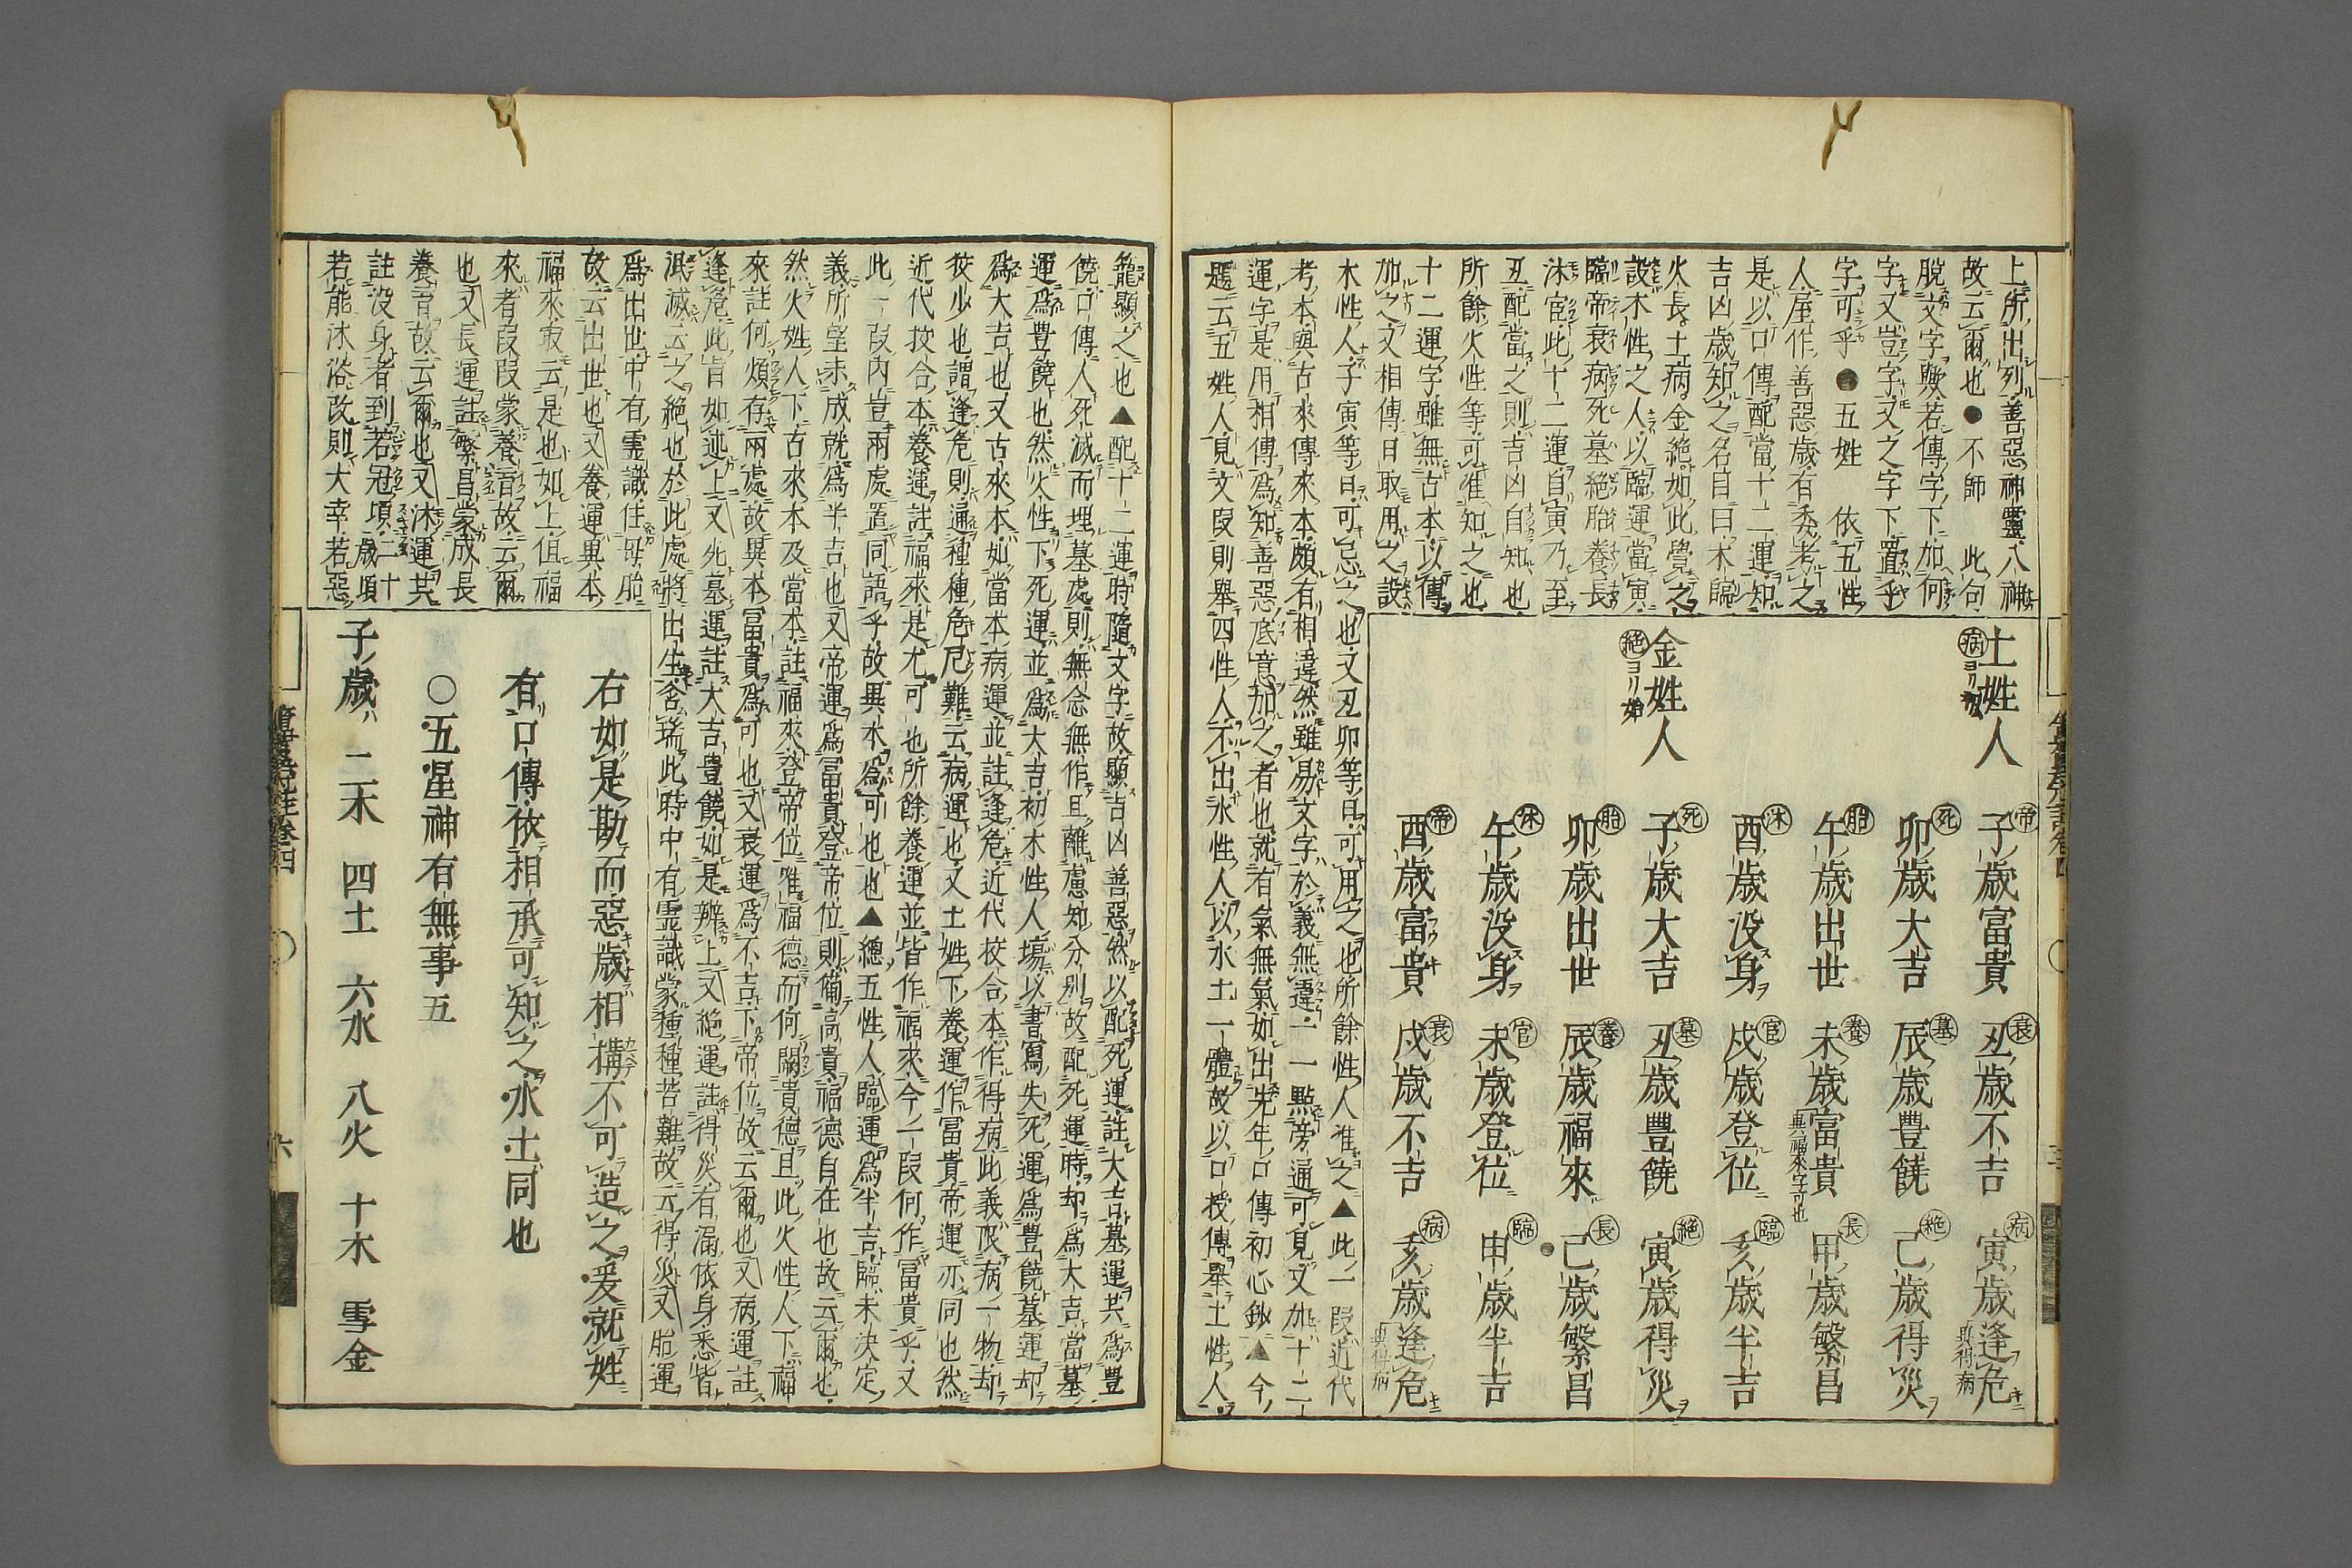 上所出列善惡神靈八神
故云爾也●不師 此句
脫文字歟若傳字下加何
字又豈字又之字下置乎
字可乎●五姓 依五性
人屋作善惡歲有秀考之
是以口傳配當十二運知
吉凶歲知之名目曰木臨
火長土病金絕如此覺之
設木性之人以臨運當寅
臨帝衰病死墓絕胎養長
沐官此十二運自寅乃至
丑配當之則吉凶自知也
所餘火性等可准知之也
十二運字雖無古本以傳
加之又相傳日取用之設
木性人子寅等日可忌之也又丑卯等日可用之也所餘性人准之▲此一段近代
考本與古來傳來本頗有相違然雖易文字於義無違一一點旁通可見又加十二
運字是用相傳爲知善惡底意加之者也就有氣無氣如出先年口傳初心鈔▲今
題云五姓人見文段則舉四性人不出水性人以水土一體故以口授傳舉土性人
土姓人
病ヨリ
子歲富貴 丑歲不吉 寅歲逢危
帝 衰 病
異得病
卯歲大吉 辰歲豐饒 己歲得災
死 墓 絕
午歲出世 未歲富貴 申歲繁昌
胎 養 長
異福來字可也
酉歲没身 戌歲登位 亥歲半吉
沐 官 臨
金姓人
絕ヨリ始
子歲大吉 丑歲豐饒 寅歲得災
死 墓 絕
卯歲出世 辰歲福來 己歲繁昌
胎 養 長
午歲没身 未歲登位 申歲半吉
沐 官 臨
酉歲富貴 戌歲不吉 亥歲逢危
帝 衰 病
異得病
籠顯之也▲配十二運時隨文字故顯吉凶善惡然以配死運註大吉墓運共爲豐
饒口傳人死滅而埋墓處則無念無作且離慮知分別故配死運時却爲大吉當墓
運爲豐饒也然火性下死運並爲大吉初木性人場以書寫失死運爲豐饒墓運却
爲大吉也又古來本如當本病運並註逢危近代挍合本作得病此義限病一物却
挍少也謂逢危則通種種危厄難云病運也又土姓下養運作富貴帝運亦同也然
近代挍合本養運註福來是尤可也所餘養運並皆作福來今一段何作富貴乎又
此一段内豈兩處置同語乎故異本爲可也也▲總五性人臨運爲半吉臨未決定
義所望未成就爲半吉也又帝運爲冨貴登帝位則備高貴福德自在也故云爾也
然火姓人下古來本及當本註福來登帝位唯福德而何闕貴德且此火性人下福
來註何煩存兩處故異本冨貴爲可也又衰運爲不吉下帝位故云爾也又病運註
逢危此皆如述上又死墓運註大吉豊饒如是辨上又絕運註得災有漏依身悉皆
泯滅云之絕也於此處將出生含瑞此時中有靈識蒙種種苦難故云得災又胎運
爲出出中有靈識住母胎
故云出世也又養運異本
福來最云是也如上但福
來者叚叚蒙養育故云爾
也又長運註繁昌蒙成長
養育故云爾也又沐運其
註没身者到若冠頃二十歲頃
若能沐浴改則大幸若惡
右如是勘而惡歲相構不可造之爰就姓
有口傳依相承可知之水土同也
○五星神有無事五
子歲 二木 四土 六水 八火 十木 雪金